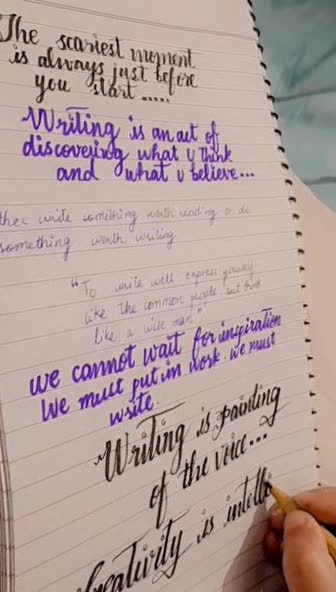 The scariest moment
is always just before
you start .....
Writing is an act of
discovering what u think
and what u believe...
ther write something worth reading or do
something worth writing
"To write well express yourself
like the common people, but think
like a wise man."
we cannot wait for inspiration
We must put in work. we must
write.
Writing is painting
of the voice...
Creativity is intelli